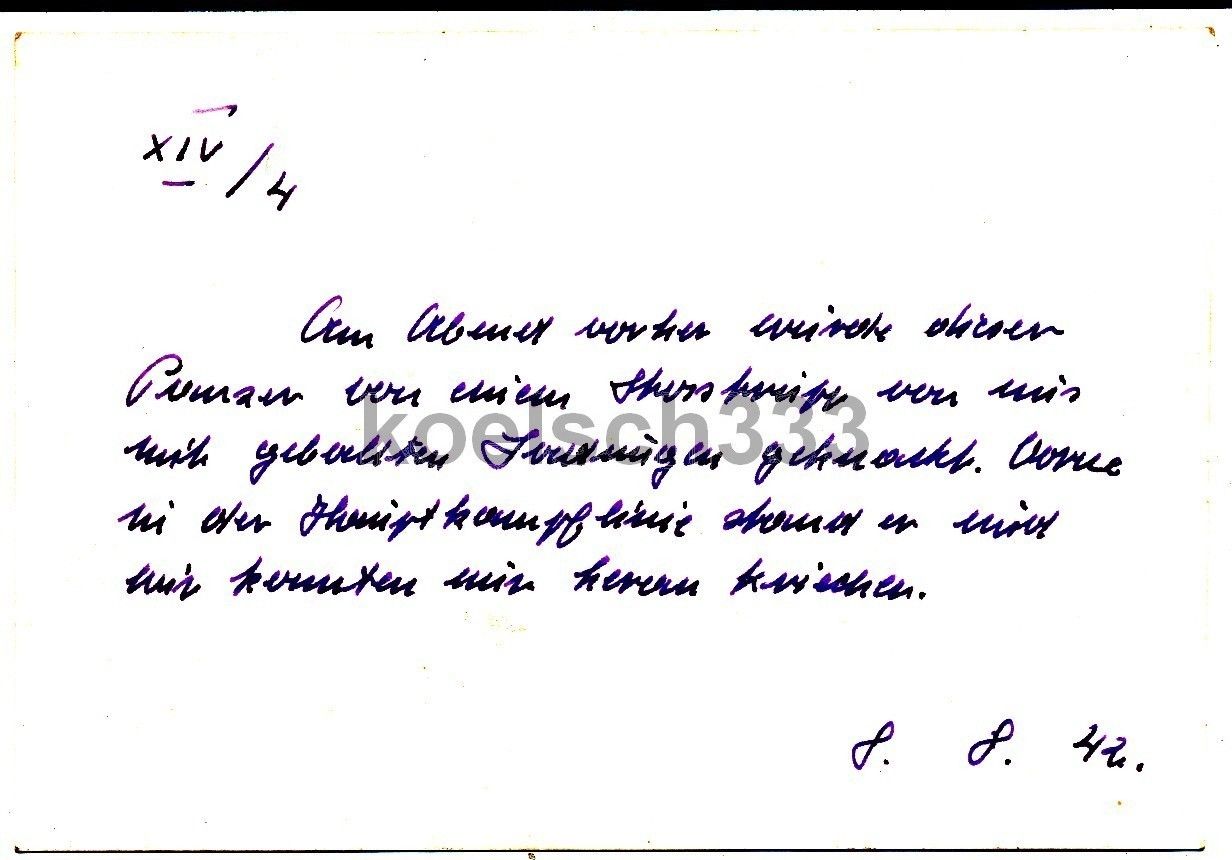 XIV / 4
Am Abend vorher wurde dieser
Panzer von einem Stosstrupp von uns
mit geballten Ladungen geknackt. Vorne
in der Hauptkampflinie stand er und
wir konnten nur heran kriechen.
8. 8. 42.
koelsch333